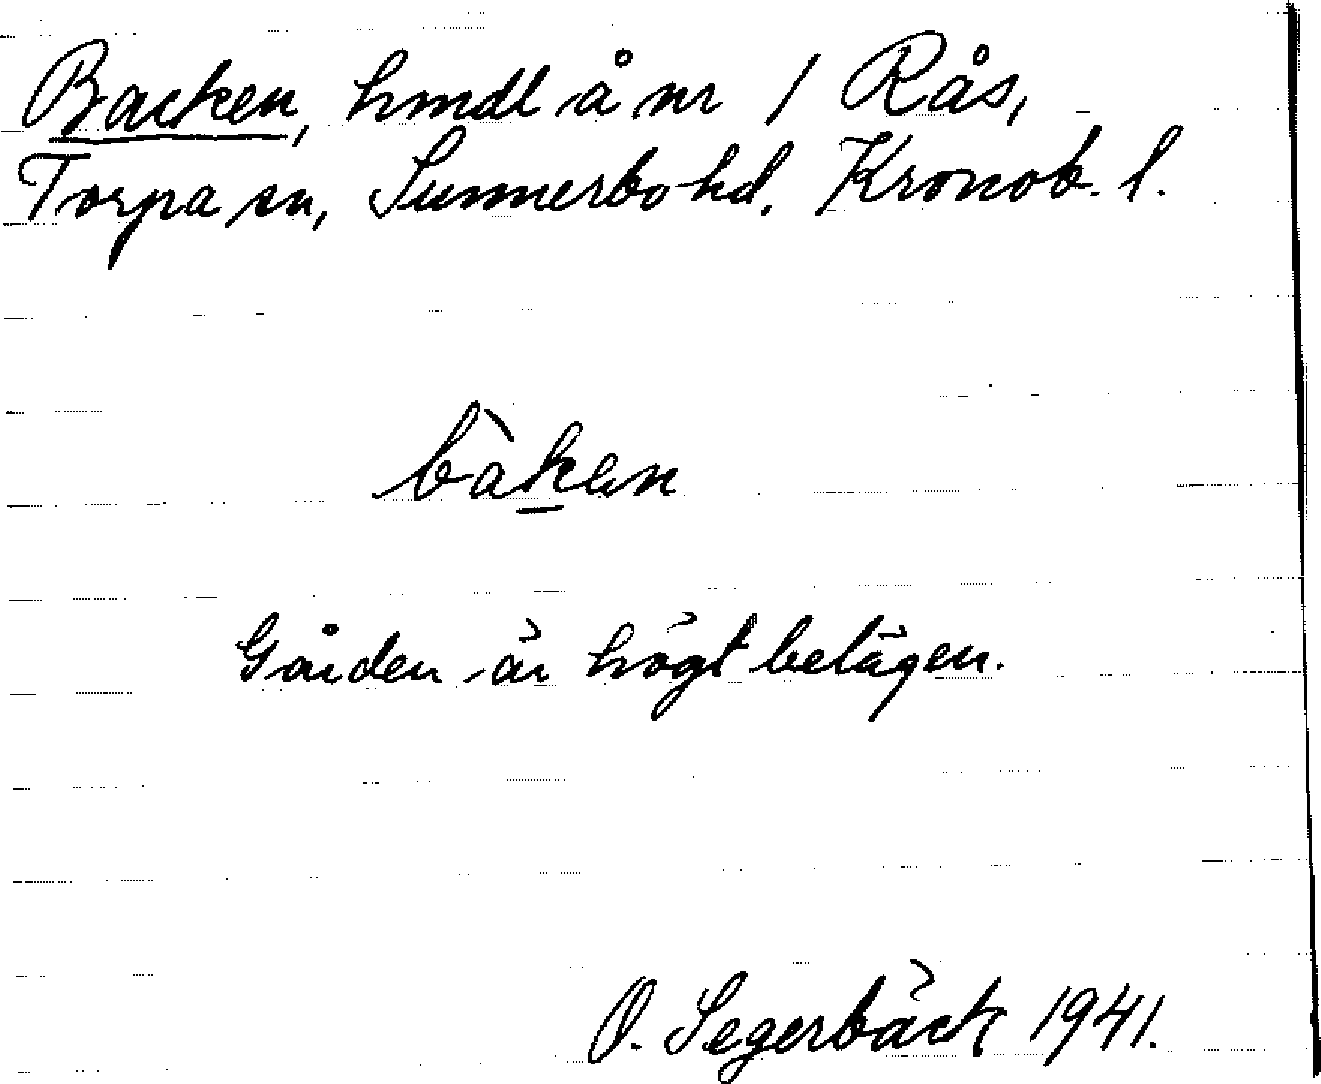 Backen, hmdl å nr 1 Rås,
Torpa sn, Sunnerbo hd. Kronob. l.
bàken
Gården är högt belägen.
O. Segerbäck 1941.